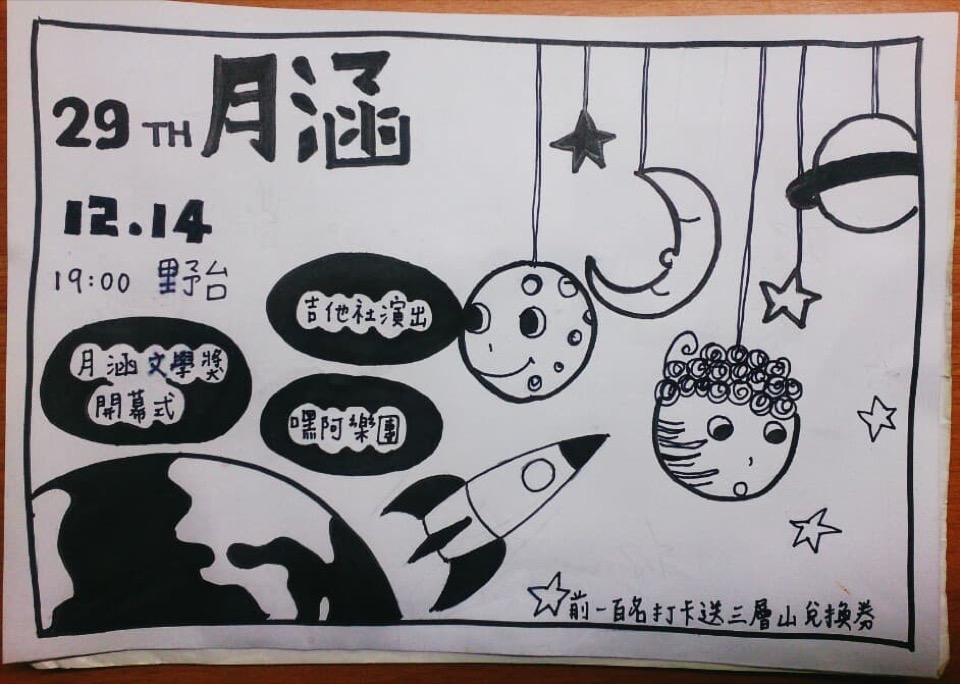 29TH月涵
12.14
19:00 野台
吉他社演出
月涵文學獎
開幕式
嘿阿樂團
前一百名打卡送三層山兌換券